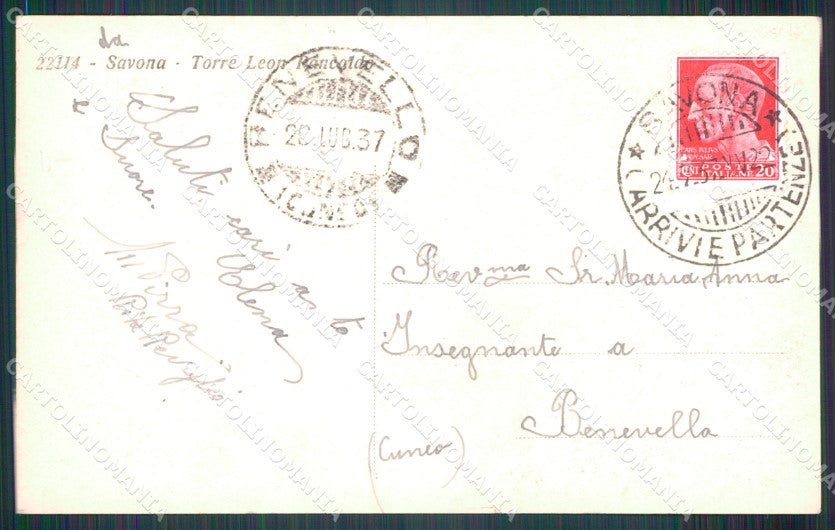 da
22114 - Savona - Torre Leon Pancaldo
Saluti cari a te
e Suore.
Elena
BENEVELLO
28.LUG.37
(CUNEO)
SAVONA
(ARRIVI E PARTENZE)
POSTE
ITALIANE
CENT 20
Rev.ma Sr. Maria Anna
Insegnante a
Benevella
(Cuneo)
CARTOLINOMANIA